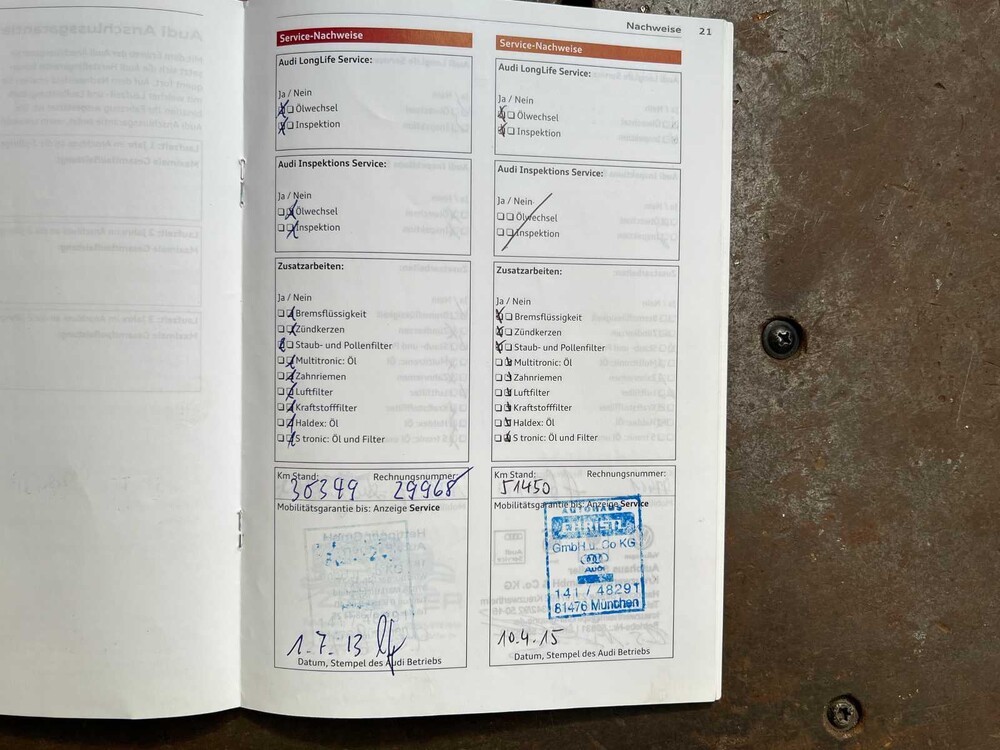 Nachweise 21
Service-Nachweise
Audi LongLife Service:
Ja / Nein
Ölwechsel
Inspektion
Audi Inspektions Service:
Ja / Nein
Ölwechsel
Inspektion
Zusatzarbeiten:
Ja / Nein
Bremsflüssigkeit
Zündkerzen
Staub- und Pollenfilter
Multitronic: Öl
Zahnriemen
Luftfilter
Kraftstofffilter
Haldex: Öl
S tronic: Öl und Filter
Km Stand: Rechnungsnummer:
30349 29968
Mobilitätsgarantie bis: Anzeige Service
1.7.13
Datum, Stempel des Audi Betriebs
Service-Nachweise
Audi LongLife Service:
Ja / Nein
Ölwechsel
Inspektion
Audi Inspektions Service:
Ja / Nein
Ölwechsel
Inspektion
Zusatzarbeiten:
Ja / Nein
Bremsflüssigkeit
Zündkerzen
Staub- und Pollenfilter
Multitronic: Öl
Zahnriemen
Luftfilter
Kraftstofffilter
Haldex: Öl
S tronic: Öl und Filter
Km Stand: Rechnungsnummer:
51450
Mobilitätsgarantie bis: Anzeige Service
AUTOHAUS
GmbH u. Co KG
Audi
141 / 48291
81476 München
10.4.15
Datum, Stempel des Audi Betriebs